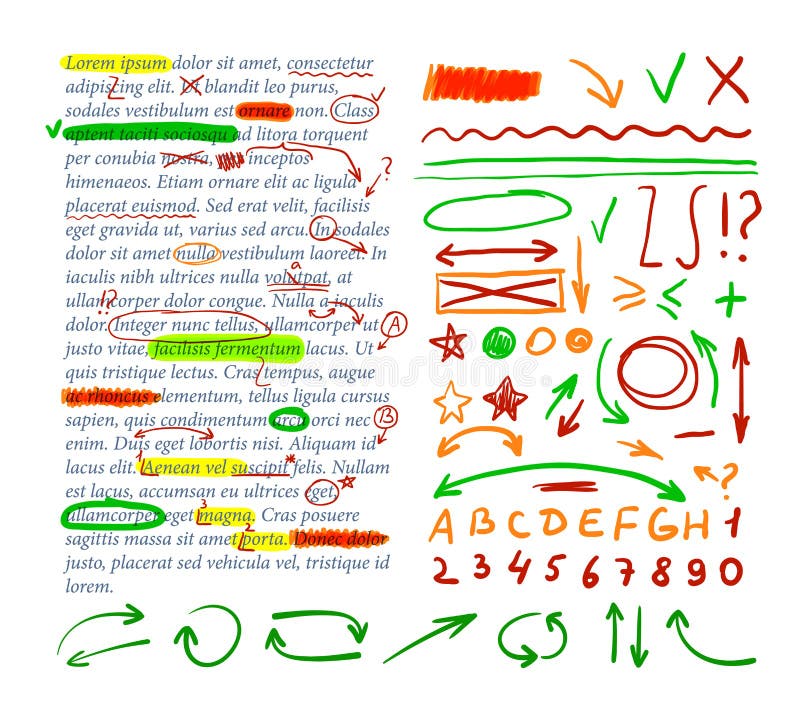 Lorem ipsum dolor sit amet, consectetur
adipiscing elit. Ut blandit leo purus,
sodales vestibulum est ornare non. Class
aptent taciti sociosqu ad litora torquent
per conubia nostra, inceptos
himenaeos. Etiam ornare elit ac ligula
?
placerat euismod. Sed erat velit, facilisis
eget gravida ut, varius sed arcu. In sodales
dolor sit amet nulla vestibulum laoreet. In
a
iaculis nibh ultrices nulla volutpat, at
!?
ullamcorper dolor congue. Nulla a iaculis
dolor. Integer nunc tellus, ullamcorper ut
A
justo vitae, facilisis fermentum lacus. Ut
quis tristique lectus. Cras tempus, augue
ac rhoncus elementum, tellus ligula cursus
sapien, quis condimentum arcu orci nec
B
enim. Duis eget lobortis nisi. Aliquam id
1
lacus elit. Aenean vel suscipit* felis. Nullam
lacus, accumsan eu ultrices eget,
3
ullamcorper eget magna. Cras posuere
2
sagittis massa sit amet porta. Donec dolor
justo, placerat sed vehicula vel, tristique id
lorem.
!?
≥ ≤ +
?
A B C D E F G H 1
2 3 4 5 6 7 8 9 0
dreamstime